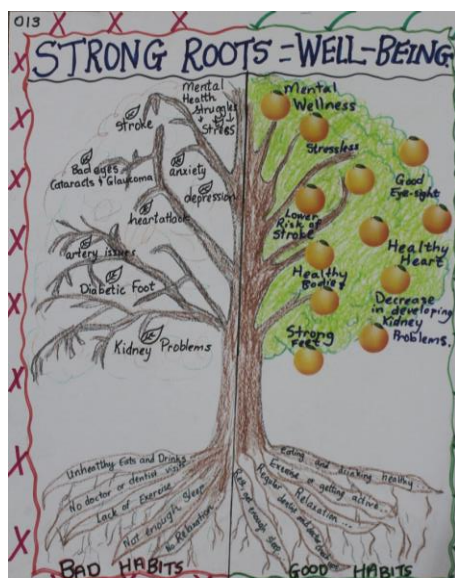 013
STRONG ROOTS = WELL-BEING
Mental
Health
Struggles
Stress
stroke
Bad eyes
Cataracts & Glaucoma
anxiety
depression
heartattack
artery issues
Diabetic Foot
Kidney Problems
Mental
Wellness
Stressless
Good
Eye-sight
Lower
Risk of
Stroke
Healthy
Heart
Healthy
Bodies
Decrease
in developing
Kidney
Problems.
Strong
Feet
Unhealthy Eats and Drinks
No doctor or dentist visits
Lack of Exercise
Not enough Sleep
No Relaxation
Eating and drinking healthy
Exercise or getting active...
Relaxation...
Regular doctor and dentist
get enough sleep
BAD HABITS
GOOD HABITS